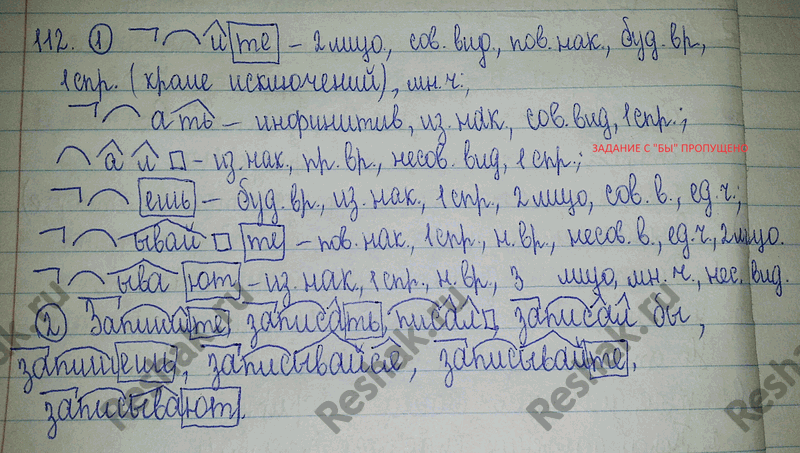 112. ① ите – 2 лицо, сов. вид, пов. нак., буд. вр.,
1 спр. (кроме исключений), мн. ч.;
ать – инфинитив, из. нак., сов. вид, 1 спр.;
ЗАДАНИЕ С "БЫ" ПРОПУЩЕНО
ал – из. нак., пр. вр., несов. вид, 1 спр.;
ешь – буд. вр., из. нак., 1 спр., 2 лицо, сов. в., ед. ч.;
ывай те – пов. нак., 1 спр., н. вр., несов. в., ед. ч., 2 лицо.
ыва ют – из. нак., 1 спр., н. вр., 3 лицо, мн. ч., нес. вид.
② Запишите, записать, писал, записал бы,
запишешь, записывайся, записывайте,
записывают.
Reshak.ru
Reshak.ru
Reshak.ru
Reshak.ru